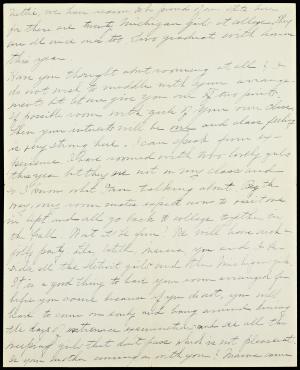 notice, we have reason to be proud of our state here
for there are twenty Michigan girls at college. They
are all nice and too. Two graduate with honor
this year.
Have you thought about rooming at all? I
do not wish to meddle with your arrange-
ments but let me give you one or two points.
If possible room with girls of your own class,
then your interests will be one and class feeling
is very strong here. I can speak from ex-
perience. I have roomed with two lovely girls
this year but they are not in my class and
so I know what I am talking about. By the
way, my room mates expect now to visit me
in Sept and all go back to college together in
the fall. Won't it be fun! We will have such a
jolly party. Lila, Edith, Maria, you and I be-
side all the Detroit girls and other Michigan girls.
It is a good thing to have your room arranged for
before you come because if you do not, you will
have to come on early and hang around during
the days of entrance examinations and see all the
weeping girls that don't pass which is not pleasant.
Is your mother coming on with you? Mama came